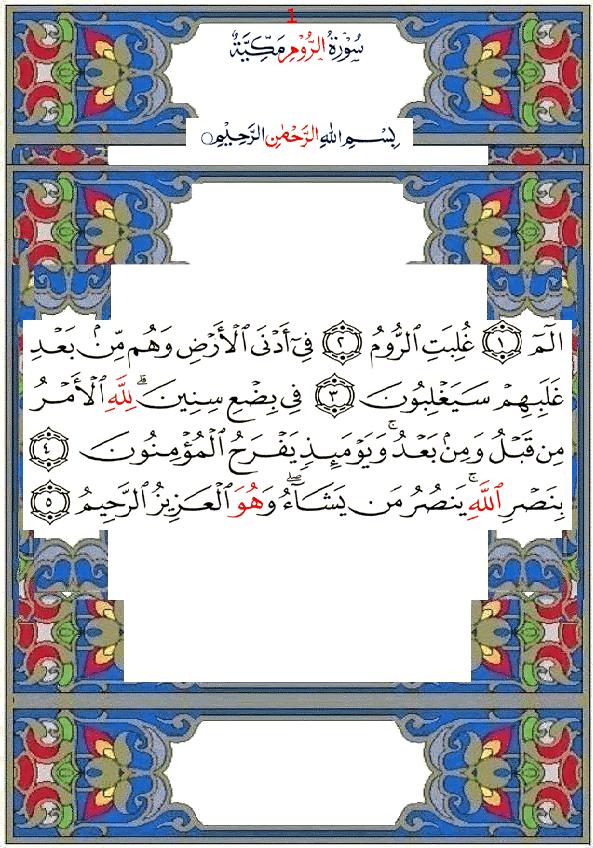 1
سُوْرَةُ الرُّوْمِ مَكِّيَّةٌ
بِسْمِ اللهِ الرَّحْمٰنِ الرَّحِيْمِ
الٓمٓ ١ غُلِبَتِ ٱلرُّومُ ٢ فِىٓ أَدْنَى ٱلْأَرْضِ وَهُم مِّنۢ بَعْدِ
غَلَبِهِمْ سَيَغْلِبُونَ ٣ فِى بِضْعِ سِنِينَ ۗ لِلَّهِ ٱلْأَمْرُ
مِن قَبْلُ وَمِنۢ بَعْدُ ۚ وَيَوْمَئِذٍ يَفْرَحُ ٱلْمُؤْمِنُونَ ٤
بِنَصْرِ ٱللَّهِ ۚ يَنصُرُ مَن يَشَآءُ ۖ وَهُوَ ٱلْعَزِيزُ ٱلرَّحِيمُ ٥